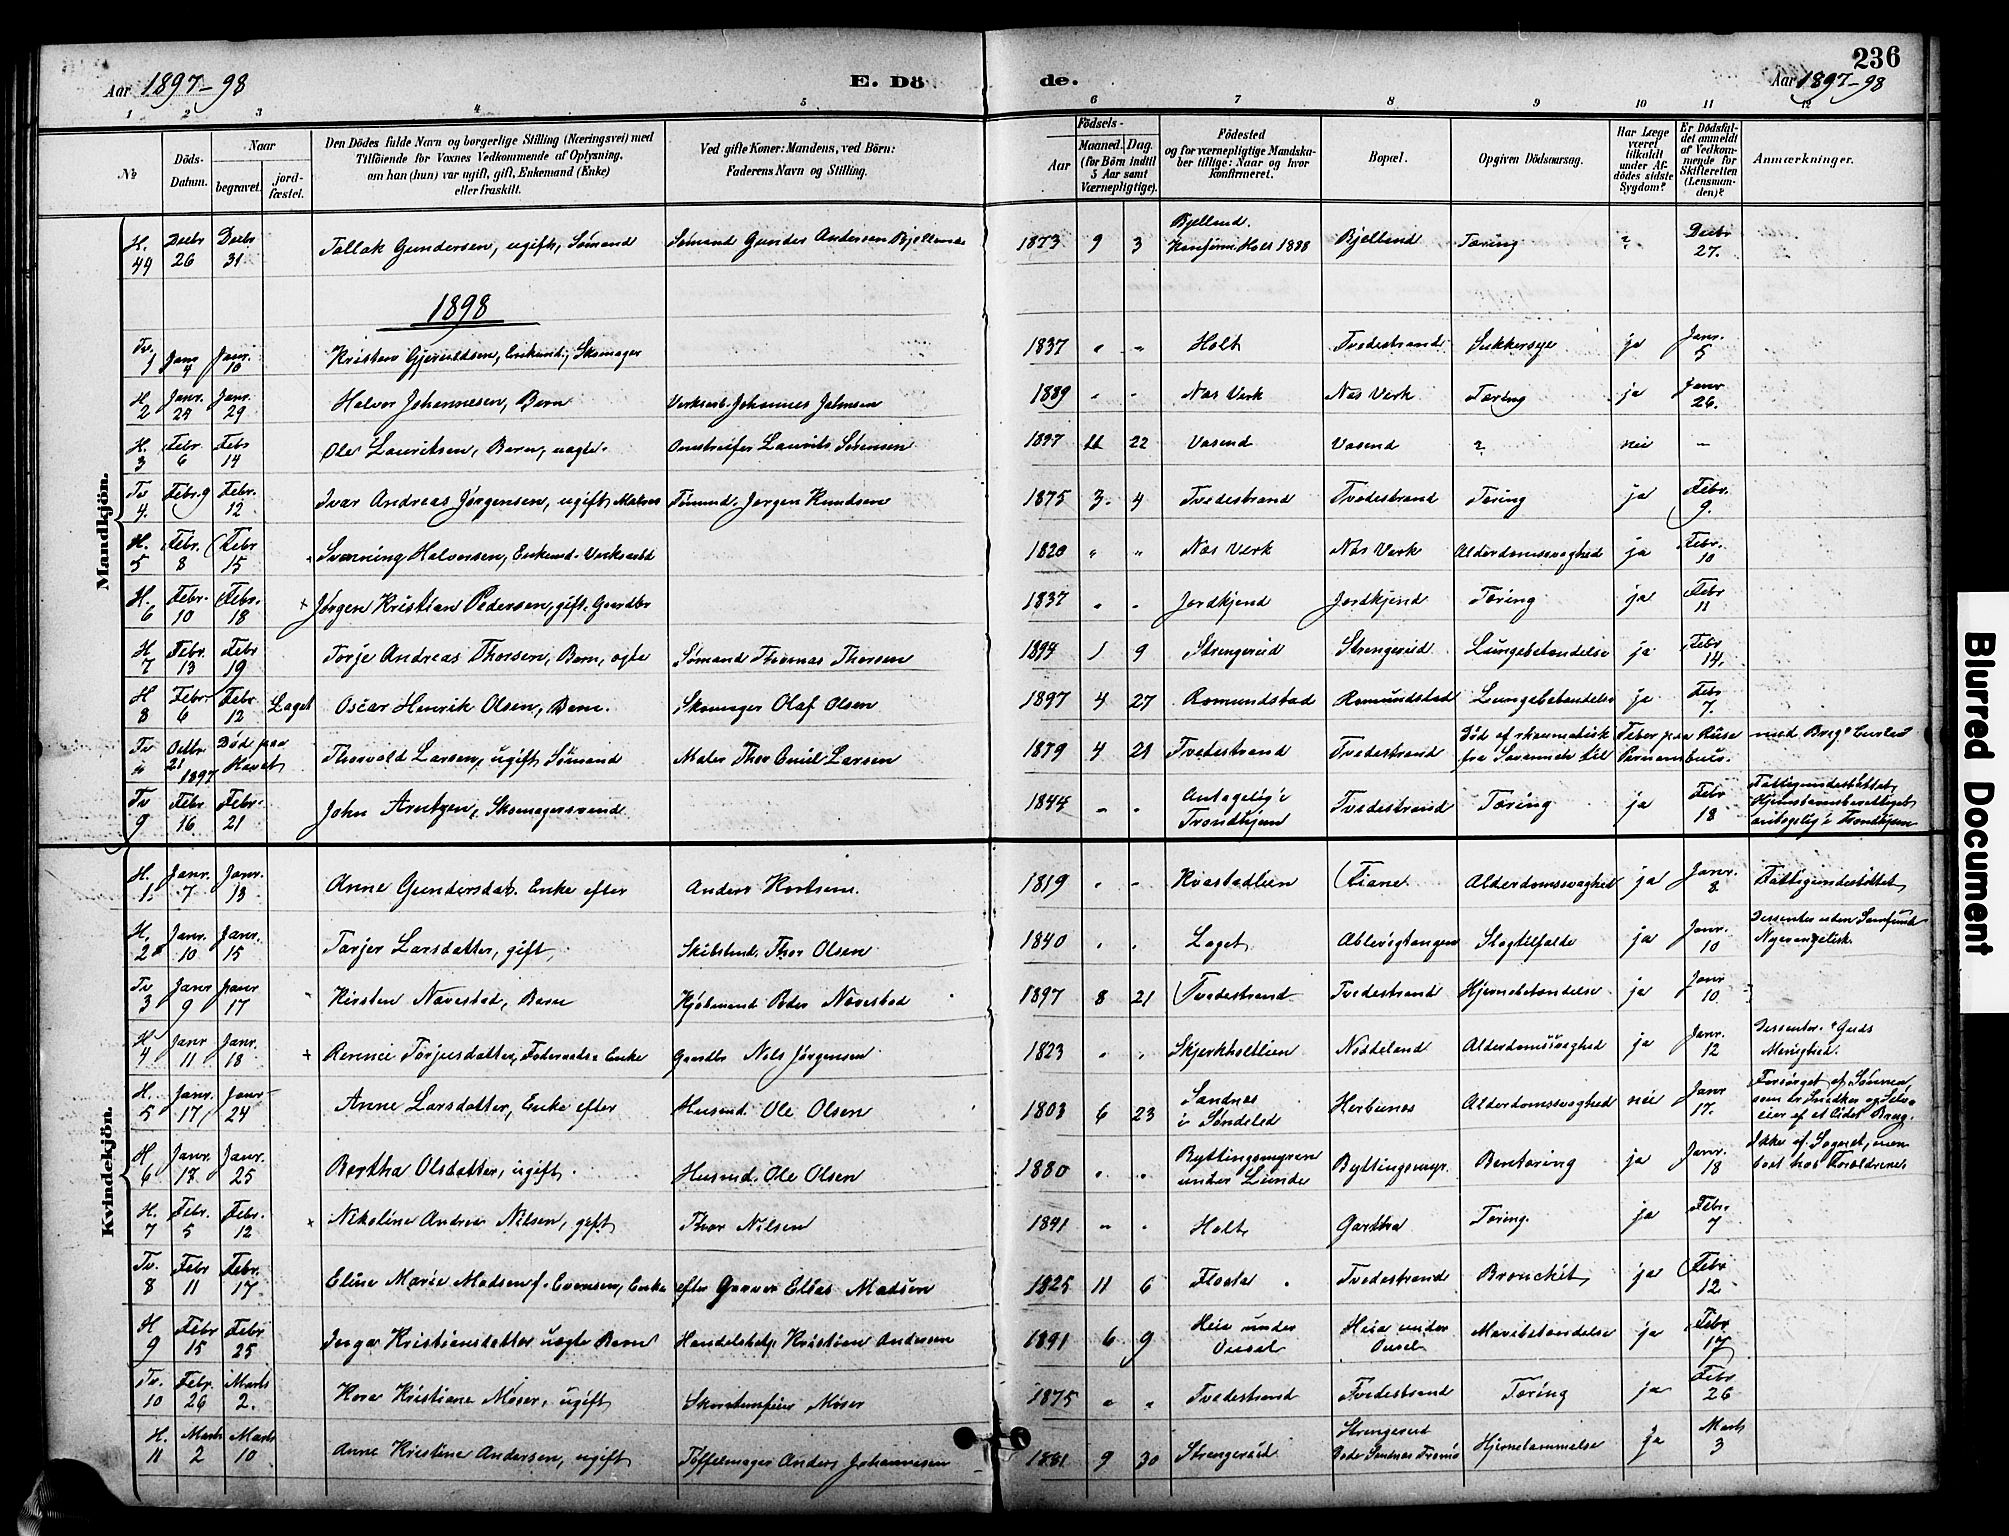 236
Aar 1897-98 E. Dö de. Aar 1897-98
1 2 3 4 5 6 7 8 9 10 11 12
No
Döds-Datum.
Naar
begravet.
jord-fæstet.
Den Dödes fulde Navn og borgerlige Stilling (Næringsvei) med
Tilföiende for Voxnes Vedkommende af Oplysning,
om han (hun) var ugift, gift, Enkemand (Enke)
eller fraskilt.
Ved gifte Koner: Mandens, ved Börn:
Faderens Navn og Stilling.
Födsels-
Aar
Maaned. Dag.
(for Börn indtil
5 Aar samt
Værnepligtige).
Födested
og for værnepligtige Mandska-
ber tillige: Naar og hvor
konfirmeret.
Bopæl.
Opgiven Dödsaarsag.
Har Læge
været
tilkaldt
under Af-
dödes sidste
Sygdom?
Er Dödsfal-
det anmeldt
af Vedkom-
mende for
Skifteretten
(Lensman-
den)?
Anmærkninger.
Mandkjön.
H. 44 Decbr 26 Decbr 31 Tollak Gundersen, ugift, Sømand Sømand Gunder Andersen Bjelland 1873 9 3 Bjelland. Konfirm. Holt 1888 Bjelland Tæring ? Decbr 27.
1898
Tv. 1 Janr 4 Janr. 10 Kristen Gjeruldsen, Enkemd, Skomager 1837 " " Holt Tvedestrand Sukkersyge ja Janr. 5
H 2 Janr. 24 Janr. 29 Halvor Johannesen, Barn Verksarb. Johannes Johnsen 1889 " " Næs Verk Næs Verk Tæring ja Janr 26.
H. 3 Febr 6 Febr 14 Ole Lauritsen, Barn, uægte. Laurits Sørensen 1897 22 Vasend Vasend ? nei -
Tv 4. Febr. 9 Febr. 12 Ivar Andreas Jørgensen, ugift, Matros Tømmd. Jørgen Knudsen 1875 3. 4 Tvedestrand Tvedestrand Tæring ja Febr. 9.
H. 5 Febr. 8 Febr 15 Svenning Halvorsen, Enkemd. Verksarbd 1820 " " Næs Verk Næs Verk Alderdomssvaghed ja Febr. 10
H. 6 Febr. 10 Febr. 18 + Jørgen Kristian Pedersen, gift. Gaardbr 1837 " " Jordkjend Jordkjend Tæring ja Febr 11
H 7 Febr. 13 Febr 19 Torje Andreas Thorsen, Barn, ægte Sømand Thomas Thorsen 1894 1 9 Strengereid Strengereid. Lungebetændelse ja Febr 14.
H 8 Febr 6 Febr 12 Laget Oscar Henrik Olsen, Barn. Skomager Olaf Olsen 1897 4 27 Romundstad Romundstad Lungebetændelse ja Febr 7.
Tv " Octbr. 21 1897 Død paa Havet Thorvald Larsen, ugift Sømand Maler Thor Emil Larsen 1879 4 21 Tvedestrand Tvedestrand Død af rheumatisk Feber paa Reise med Brig
fra Savannah til Pernambuco.
Tv 9 Febr 16 Febr. 21 John Arntzen, Skomagersvend 1844 " " Antagelig i Trondhjem Tvedestrand Tæring ja Febr 18 Fattigunderstøttet,
Hjemstavnsberettiget
antagelig i Trondhjem
Kvindekjön.
H. 1. Janr. 7 Janr. 13 Anne Gundersdat. Enke efter Anders 1819 " " Kvastadlien Fiane Alderdomssvaghed ja Janr. 8 Fattigunderstøttet
H. 2 Janr. 10 Janr. 15 Tarjer Larsdatter, gift, Thor Olsen 1840 " " Laget Ablevigtangen Slagtilfælde ja Janr. 10 Dissenter uden Samfund
Nyevangelisk.
Tv 3 Janr 9 Janr 17 Kirsten Navestad, Barn Kjøbmand Peder Navestad 1897 8 21 Tvedestrand Tvedestrand Hjernebetændelse ja Janr 10
H 4 Janr 11 Janr. 18 + Torjusdatter, Føderaads Enke Gaardbr Nils Jørgensen 1823 " " Skjerkholtlien Alderdomssvaghed ja Janr. 12 Dissenter i Guds
Menighed.
H. 5 Janr. 17 Janr 24 Anne Larsdatter, Enke efter Husmd. Ole Olsen 1803 6 23 Sandnes i Søndeled Alderdomssvaghed nei Janr 17. Forsørget af Sønnen,
som er Snedker og Selv-
eier af et lidet Brug.
H 6 Janr. 17 Janr. 25 Bertha Olsdatter, ugift. Husmd. Ole Olsen 1880 " " Ryttingsmyren under Lunde Ryttingsmyr. Bentæring ja Janr. 18 Ikke af Sognet, men
boet hos Forældrene
H. 7 Febr. 5 Febr. 12 + Nikoline Andrea Nilsen, gift Thor Nilsen 1841 " " Holt Tæring. ja Febr. 7
Tv. 8 Febr 11 Febr. 17 Eline Marie Madsen f. Evensen, Enke efter Garver Elias Madsen 1825 11 6 Flosta Tvedestrand Bronchit ja Febr 12
H 9 Febr 15 Febr 25 Inga Kristiansdatter uægte Barn Kristian Andersen 1891 6 9 Heia under Heia under Mavebetændelse ja Febr 17
Tv. 10 Febr. 26 Marts 2. Kristiane Moser, ugift Skorstensfeier Moser 1875 " " Tvedestrand Tvedestrand Tæring ja Febr 26
H. 11 Marts 2 Marts 10 Anne Kristine Andersen, ugift Tøffelmager Anders Johannesen 1881 9 30 Strengereid Strengereid Døde Sandnæs Tromø Hjernelammelse ja Marts 3
Blurred Document